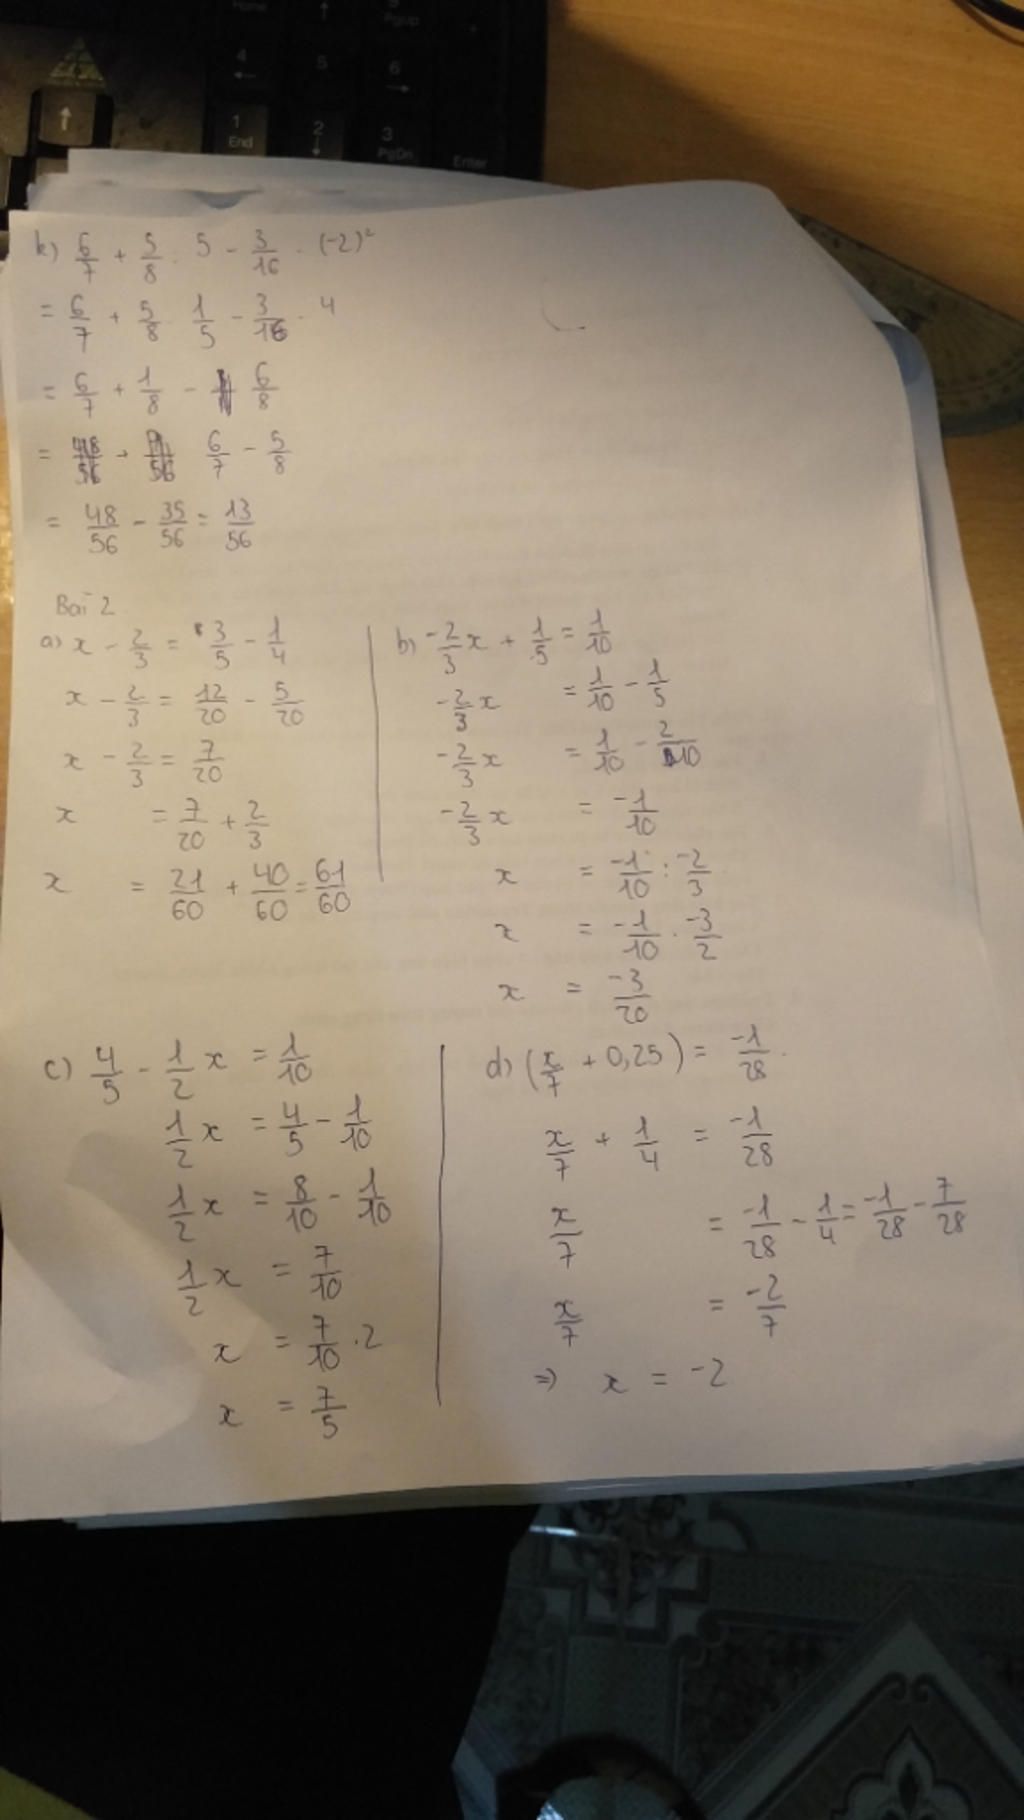 Home ↑ 9 PgUp +
4 ← 5 6 →
1 End 2 ↓ 3 PgDn Enter
↑
k) 6/7 + 5/8 : 5 - 3/16 . (-2)²
= 6/7 + 5/8 . 1/5 - 3/16 . 4
= 6/7 + 1/8 - 6/8
= 6/7 - 5/8
= 48/56 - 35/56 = 13/56
Bài 2
a) x - 2/3 = 3/5 - 1/4
x - 2/3 = 12/20 - 5/20
x - 2/3 = 7/20
x = 7/20 + 2/3
x = 21/60 + 40/60 = 61/60
b) -2/3 x + 1/5 = 1/10
-2/3 x = 1/10 - 1/5
-2/3 x = 1/10 - 2/10
-2/3 x = -1/10
x = -1/10 : -2/3
x = -1/10 . -3/2
x = -3/20
c) 4/5 - 1/2 x = 1/10
1/2 x = 4/5 - 1/10
1/2 x = 8/10 - 1/10
1/2 x = 7/10
x = 7/10 . 2
x = 7/5
d) (x/7 + 0,25) = -1/28
x/7 + 1/4 = -1/28
x/7 = -1/28 - 1/4 = -1/28 - 7/28
x/7 = -2/7
=> x = -2